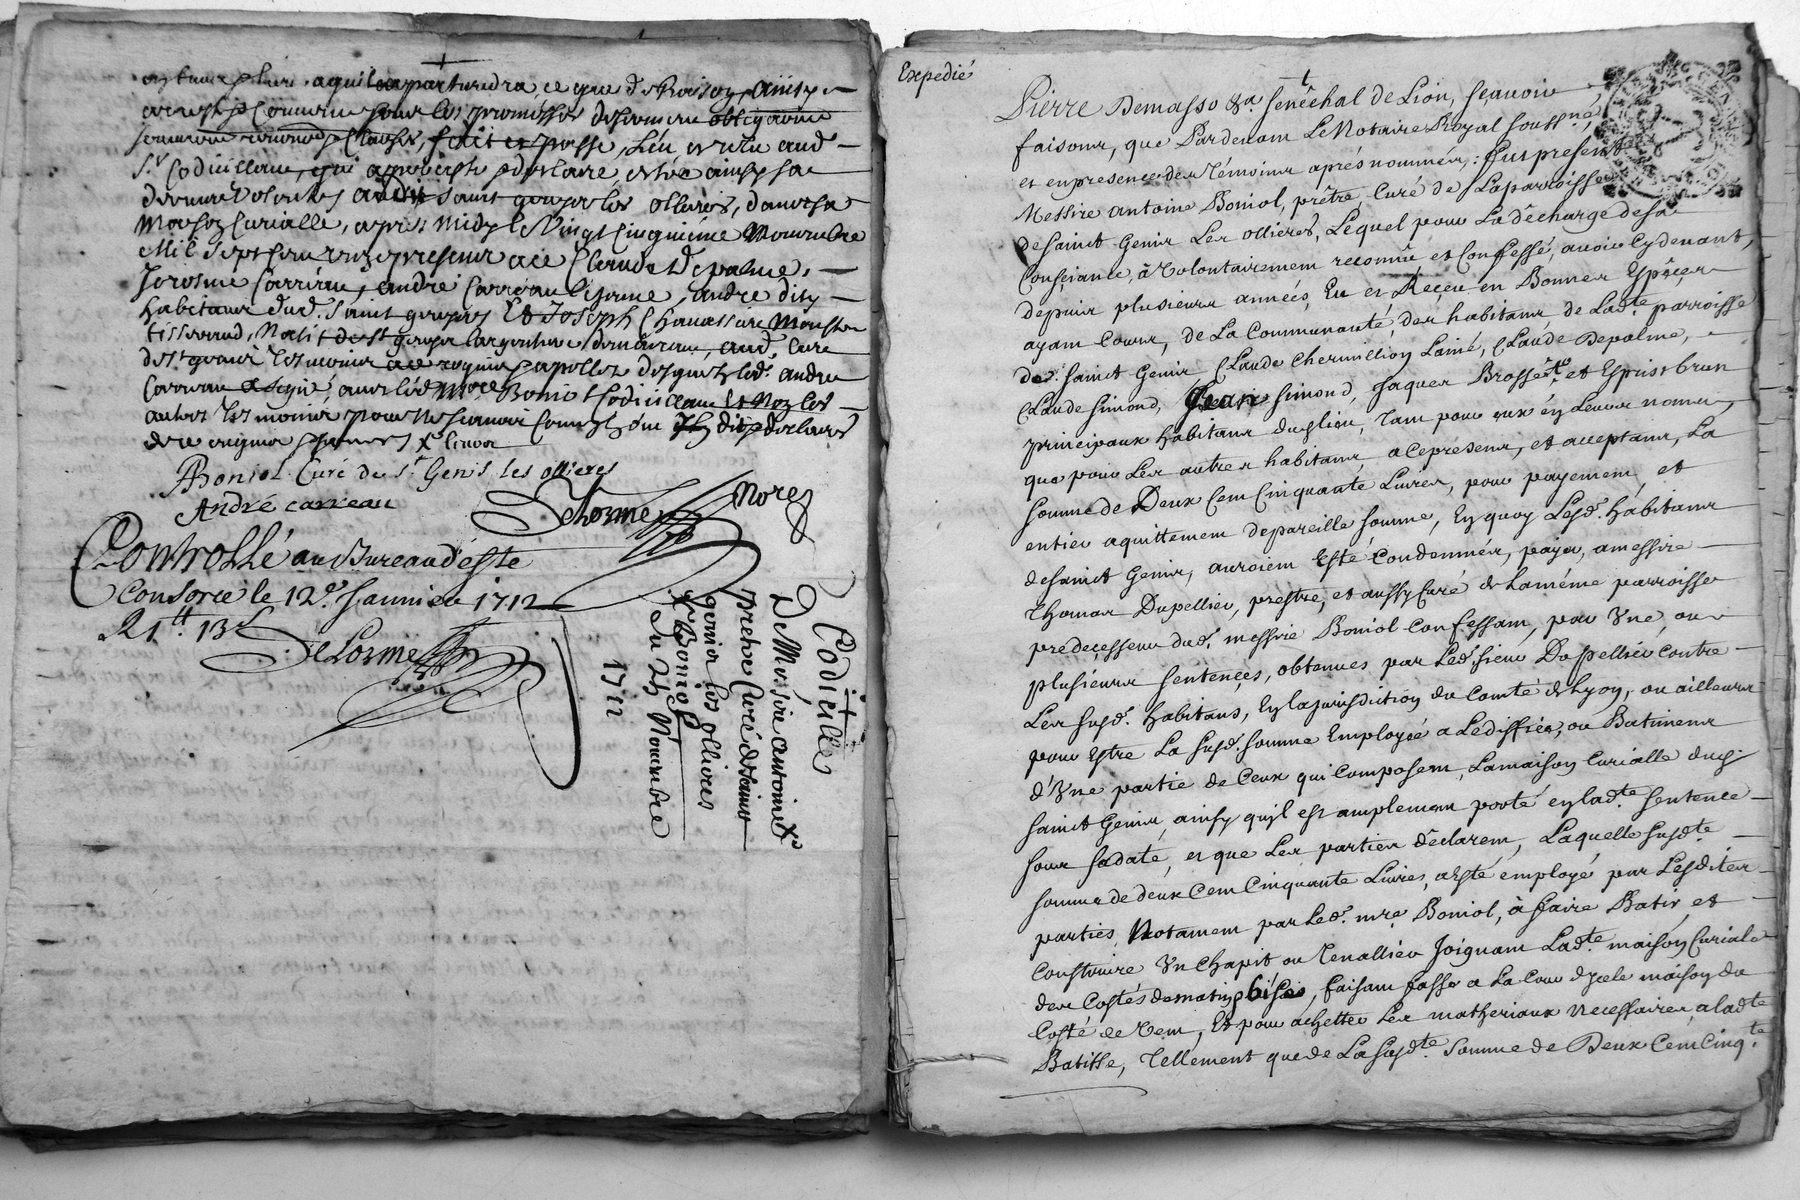 aquil apartiendra, ce que dehoison ainsy
soubs les promesses
clauses, fait et passé, Lieu
Sr. Codicillant, ainsy sa
derniere volonté, aud. saint genys les ollieres, dans sa
Maison Curialle, apres Midy le Vingt Cinquieme Nouembre
Mil Sept Cens unze presens a ce Claude Depalme,
Jerosme Carreau, andré Carreau le jeune, andre
habitans dud. saint genys Et Joseph Chauassieu Maistre
tisserand,
dest genis tesmoins a ce requis et apellez desquels led. andre
Carreau a signé, auec led. Mre Boniol Codicillant Et Non les
autres tesmoins pour ne scauoir Comme ils ont dit et declaré
de ce enquis
ABoniol Curé de St. Genis les ollieres
André carreau
Delorme Nore
Controllé au Bureau d'éste
Consorce le 12e. Januier 1712
R 1tt 13s
DeLorme
Codicille
De Messire antoine
prêtre Curé de saint
genis les ollieres
Boniol
Du 25 Nouembre
1711
Expedié
Pierre Demasso &a senêchal de Lion, sçauoir
faisons, que Pardeuant Le Notaire Royal soussné,
et en presence des Témoins aprés nommés, : fut présent
Messire antoine Boniol, prêtre, Curé de Laparroisse
de sainct Genis Les ollieres, Lequel pour La décharge de sa
Conscience, à volontairement reconnû et Confessé, auoir Cydeuant,
depuis plusieurs années, Eu et Receu en Bonnes Espêces
ayant Cours, de La Communauté des habitans de Ladte. parroisse
de sainct Genis Claude Chermillion Lainé, Claude Depalme,
Claude Simond, Jean Simond, Jaques Brosse, et Espris brun
principaux habitans dudlieu, Tant pour eux én Leurs noms,
que pour Les autres habitans, a ce presens, et acceptans, La
somme de Deux Cent Cinquante Liures, pour payement, et
entier aquittement de pareille somme, En quoy Lesd. habitans
de sainct Genis, auroient Esté Condemnés, payer, a messire
Thomas Dupellier, prestre, et aussy Curé de La même parroisse
predecesseur dud. messire Boniol confessant, par Vne, ou
plusieurs sentençes, obtenues par Led. sieur Dupellier contre
Les susd. habitans, En la jurisdiction du Comté de Lyon, ou ailleurs
pour Estre La susd. somme Employée a L'ediffice, ou Batimens
d'Vne partie de Ceux qui Composent, La maison Curialle dud.
sainct Genis, ainsy qu'il est amplement porté en ladte sentence
sous sa daté, et que Les parties dêclarent, Laquelle susdte.
somme de deux Cent Cinquante Liures, a Esté employé par Lesdites
parties Notament par Led. mre Boniol, à faire Batir et
Construire Vn Chapit ou Tenallier Joignant Ladte. maison Curiale
des Costés de matin et bise, faisant fasse a La Cour d'icele maison du
Costé de Vent, Et pour achetter Les matheriaux necessaires, a ladte
Batisse, Tellement que de La susdte. somme de Deux Cent Cinqte.